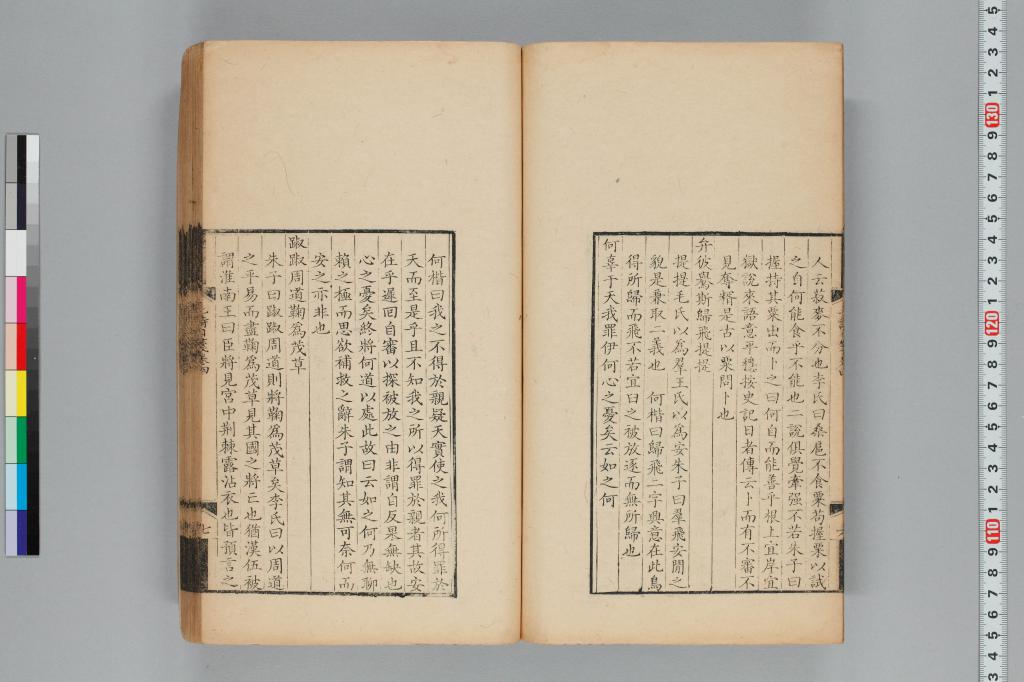 人云菽麥不分也李氏曰桑扈不食粟苟握粟以試
之自何能食乎不能也二說俱覺牽强不若朱子曰
握持其粟出而卜之曰何自而能善乎根上宜岸宜
獄說來語意平穩按史記日者傳云卜而有不審不
見奪糈是古以粟問卜也
弁彼鸒斯歸飛提提
提提毛氏以為羣王氏以為安朱子曰羣飛安閒之
貌是兼取二義也 何楷曰歸飛二字興意在此鳥
得所歸而飛不若宜臼之被放逐而無所歸也
何辜于天我罪伊何心之憂矣云如之何
何楷曰我之不得於親疑天實使之我何所得罪於
天而至是乎且不知我之所以得罪於親者其故安
在乎遲回自審以探被放之由非謂自反果無缺也
心之憂矣終將何道以處此故曰云如之何乃無聊
賴之極而思欲補救之辭朱子謂知其無可奈何而
安之亦非也
踧踧周道鞫為茂草
朱子曰踧踧周道則將鞫為茂草矣李氏曰以周道
之平易而盡鞫為茂草見其國之將亡也猶漢伍被
謂淮南王曰臣將見宮中荆棘露沾衣也皆預言之
七
130
120
110